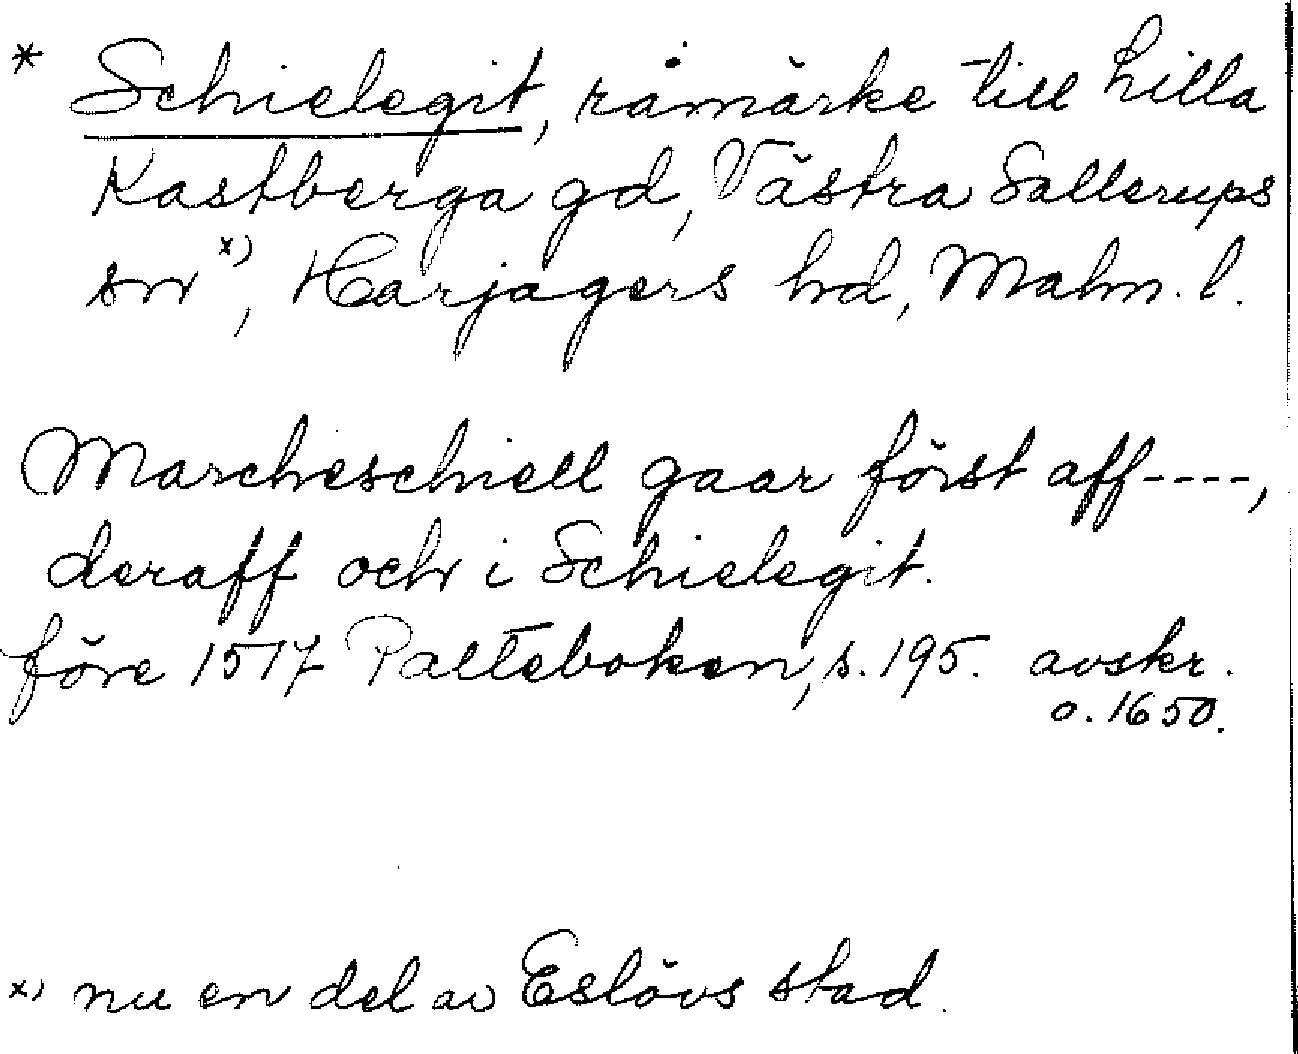 * Schielegit, råmärke till Lilla
Kastberga gd, Västra Sallerups
sn x), Harjagers hd, Malm. l.
Marcheschiell gaar först aff ----,
deraff och i Schielegit.
före 1517 Palteboken, s. 195. avskr.
o. 1650.
x) nu en del av Eslövs stad.